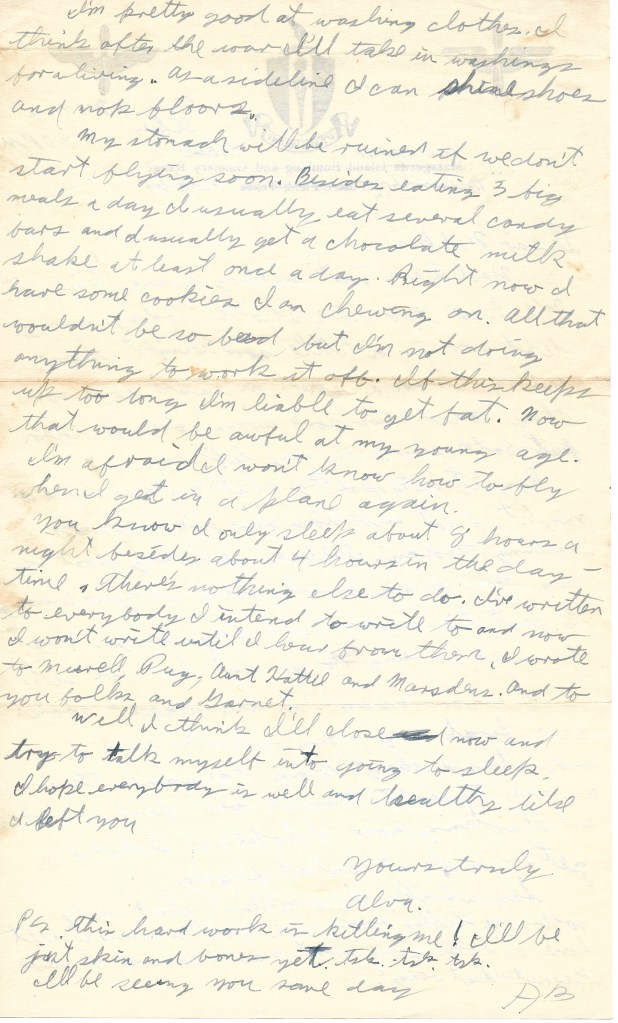 I'm pretty good at washing clothes. I
think after the war I'll take in washings
for a living. As a sideline I can shine shoes
and mok floors.
My stomach will be ruined if we don't
start flying soon. Besides eating 3 big
meals a day I usually eat several candy
bars and I usually get a chocolate milk
shake at least once a day. Right now I
have some cookies I am chewing on. All that
wouldn't be so bad but I'm not doing
anything to work it off. If this keeps
up too long I'm liable to get fat. Now
that would be awful at my young age.
I'm afraid I won't know how to fly
when I get in a plane again.
You know I only sleep about 8 hours a
night besides about 4 hours in the day-
time. There's nothing else to do. I've written
to everybody I intend to write to and now
I won't write until I hear from them. I wrote
to Pug, Aunt Hattie and Marsdens. And to
you folks and Garnet.
Well I think I'll close now and
try to talk myself into going to sleep.
I hope everybody is well and healthy like
I left you
Yours truly
Alva.
P.S. This hard work is killing me! I'll be
just skin and bones yet. tsk. tsk. tsk.
I'll be seeing you some day
AB